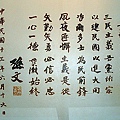 三民主義吾黨所宗
以建民國以進大同
咨爾多士為民前鋒
夙夜匪懈主義是從
一心一德貫徹始終
孫文
中華民國十三年六月十六日